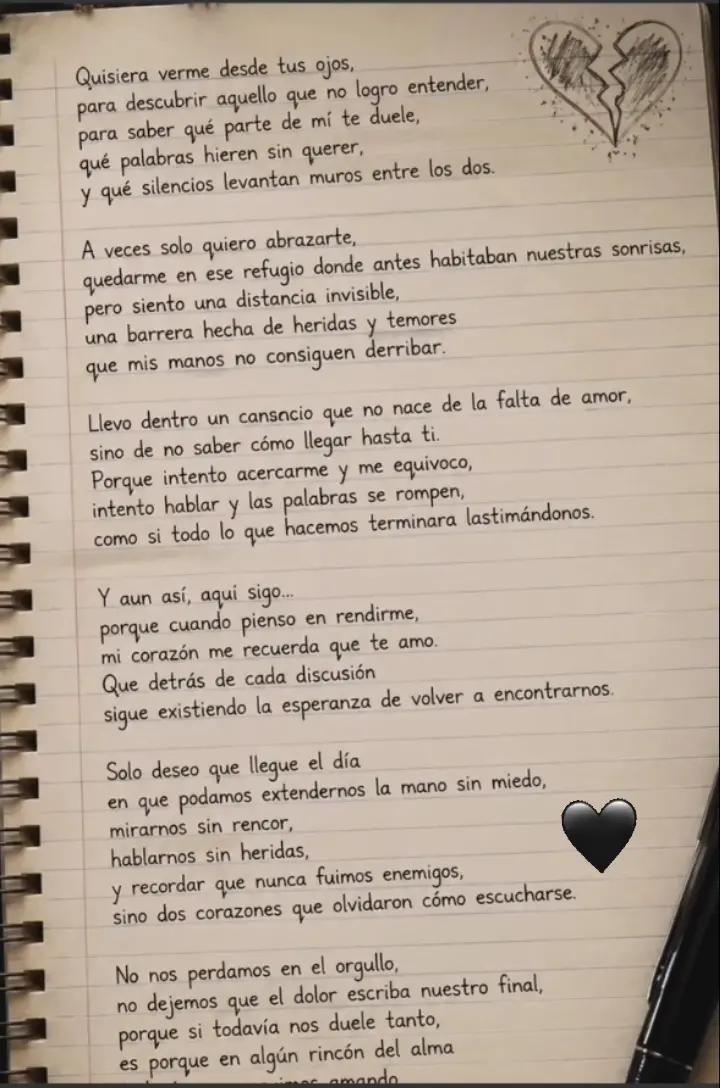 Quisiera verme desde tus ojos,
para descubrir aquello que no logro entender,
para saber qué parte de mí te duele,
qué palabras hieren sin querer,
y qué silencios levantan muros entre los dos.
A veces solo quiero abrazarte,
quedarme en ese refugio donde antes habitaban nuestras sonrisas,
pero siento una distancia invisible,
una barrera hecha de heridas y temores
que mis manos no consiguen derribar.
Llevo dentro un cansncio que no nace de la falta de amor,
sino de no saber cómo llegar hasta ti.
Porque intento acercarme y me equivoco,
intento hablar y las palabras se rompen,
como si todo lo que hacemos terminara lastimándonos.
Y aun así, aqui sigo...
porque cuando pienso en rendirme,
mi corazón me recuerda que te amo.
Que detrás de cada discusión
sigue existiendo la esperanza de volver a encontrarnos.
Solo deseo que llegue el día
en que podamos extendernos la mano sin miedo,
mirarnos sin rencor,
hablarnos sin heridas,
y recordar que nunca fuimos enemigos,
sino dos corazones que olvidaron cómo escucharse.
No nos perdamos en el orgullo,
no dejemos que el dolor escriba nuestro final,
porque si todavía nos duele tanto,
es porque en algún rincón del alma
amando